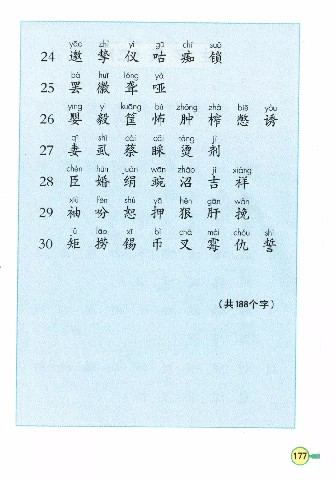 yāo zhì yí gū chī suǒ
24 邀 挚 仪 咕 痴 锁
bà huī lóng yǎ
25 罢 徽 聋 哑
yīng yì kuāng bù zhǒng zhà biē yòu
26 婴 毅 筐 怖 肿 榨 憋 诱
qī shī cài cǎi tàng jì
27 妻 虱 蔡 睬 烫 剂
chén hūn juàn wān zhǎo jí xiáng
28 臣 婚 绢 豌 沼 吉 祥
xiù fēn shù yā hěn gān wǎn
29 袖 吩 恕 押 狠 肝 挽
jǔ lāo xī bì chā méi chóu shì
30 矩 捞 锡 币 叉 霉 仇 誓
(共188个字)
177